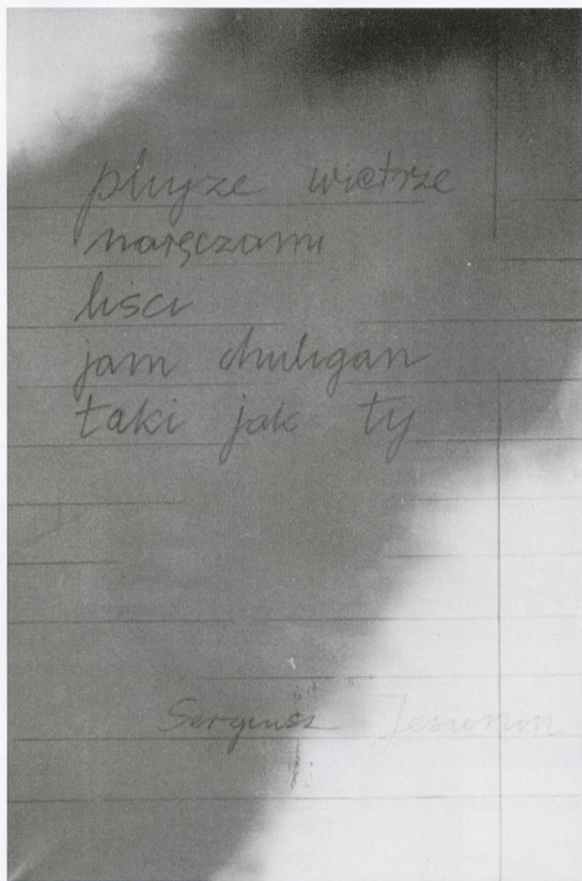 plujże wietrze
naręczami
liści
jam chuligan
taki jak ty
Sergiusz Jesienin